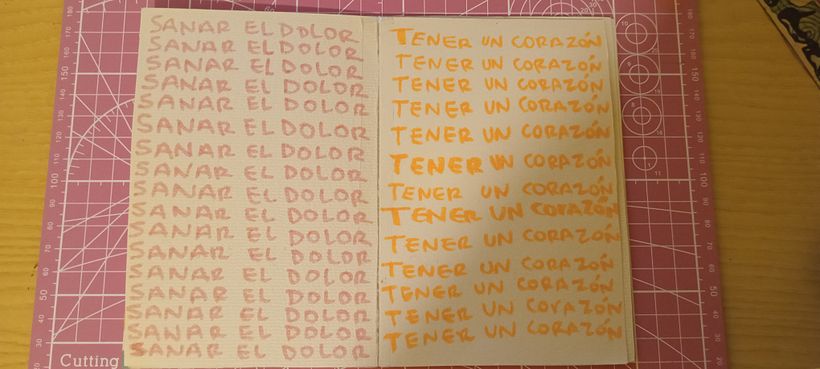 SANAR EL DOLOR
SANAR EL DOLOR
SANAR EL DOLOR
SANAR EL DOLOR
SANAR EL DOLOR
SANAR EL DOLOR
SANAR EL DOLOR
SANAR EL DOLOR
SANAR EL DOLOR
SANAR EL DOLOR
SANAR EL DOLOR
SANAR EL DOLOR
SANAR EL DOLOR
SANAR EL DOLOR
SANAR EL DOLOR
SANAR EL DOLOR
SANAR EL DOLOR
TENER UN CORAZÓN
TENER UN CORAZÓN
TENER UN CORAZÓN
TENER UN CORAZÓN
TENER UN CORAZÓN
TENER UN CORAZÓN
TENER UN CORAZÓN
TENER UN CORAZÓN
TENER UN CORAZÓN
TENER UN CORAZÓN
TENER UN CORAZÓN
TENER UN CORAZÓN
TENER UN CORAZÓN
Cutting